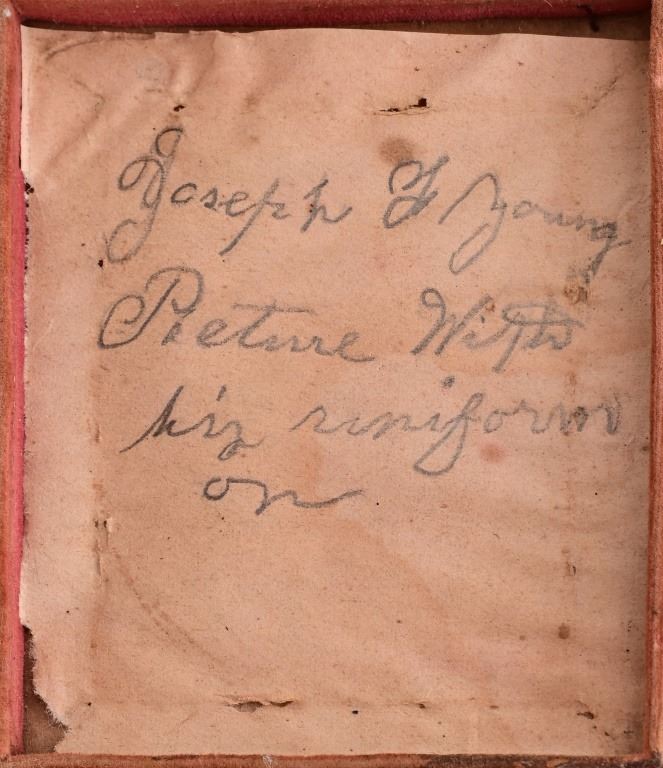 Joseph F Young
Picture With
his uniform
on